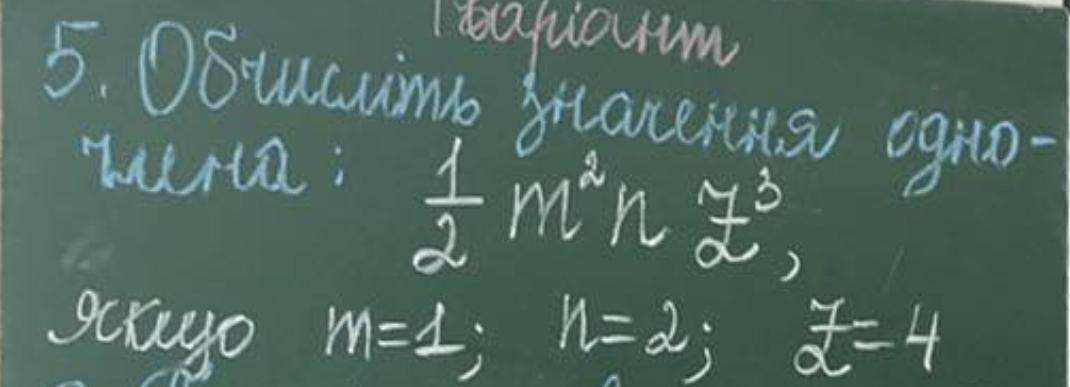 Варіант
5. Обчисліть значення одно-
члена:
1/2 m²n z³,
якщо m=1; n=2; z=4